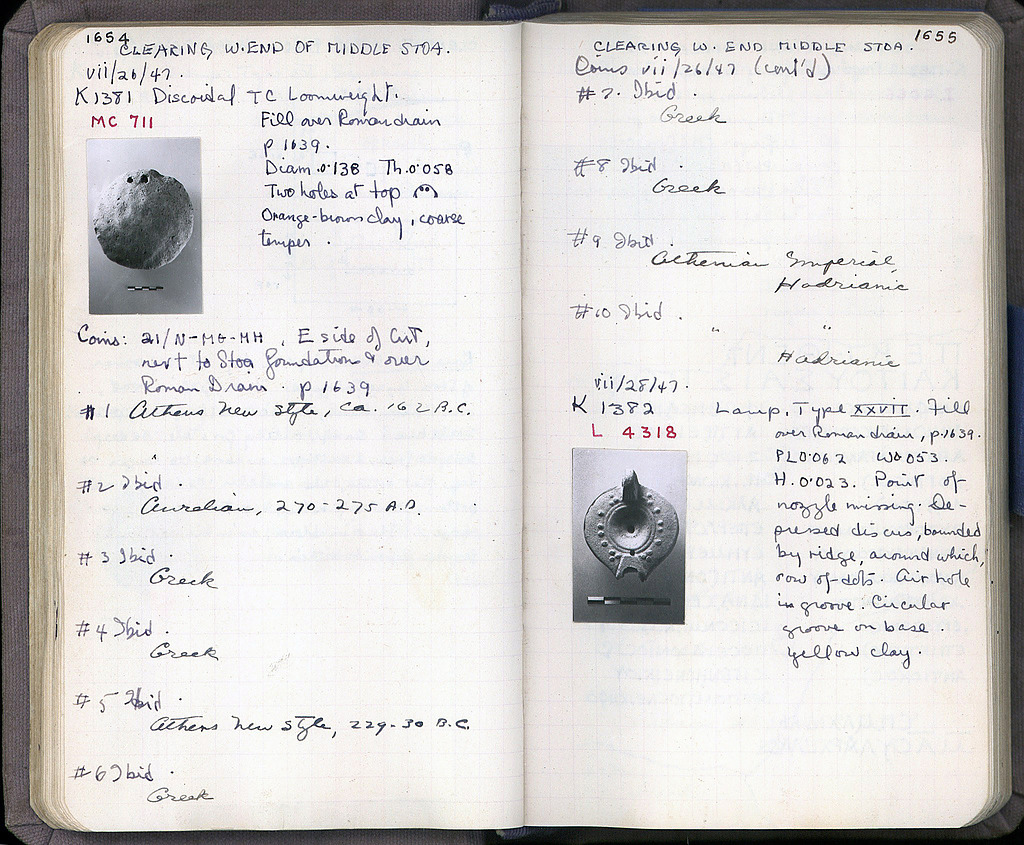 1654
CLEARING W. END OF MIDDLE STOA.
vii/26/47.
K 1381 Discoidal TC Loomweight.
MC 711
Fill over Roman drain
p 1639.
Diam. 0.138 Th. 0.058
Two holes at top
Orange-brown clay, coarse
temper.
Coins: 21/N-MG-MH, E side of Cut,
next to Stoa foundation & over
Roman Drain. p 1639
#1 Athens New Style, ca. 162 B.C.
#2 Ibid.
Aurelian, 270-275 A.D.
#3 Ibid.
Greek
#4 Ibid.
Greek
#5 Ibid.
Athens New Style, 229-30 B.C.
#6 Ibid.
Greek
1655
CLEARING W. END MIDDLE STOA.
Coins vii/26/47 (cont'd)
#7. Ibid.
Greek
#8 Ibid.
Greek
#9 Ibid.
Athenian Imperial,
Hadrianic
#10 Ibid.
" "
Hadrianic
vii/28/47.
K 1382 Lamp, Type XXVII. Fill
L 4318
over Roman drain, p. 1639.
PL 0.062 W 0.053.
H. 0.023. Point of
nozzle missing. De-
pressed discus, bounded
by ridge, around which,
row of dots. Air hole
in groove. Circular
groove on base.
Yellow clay.